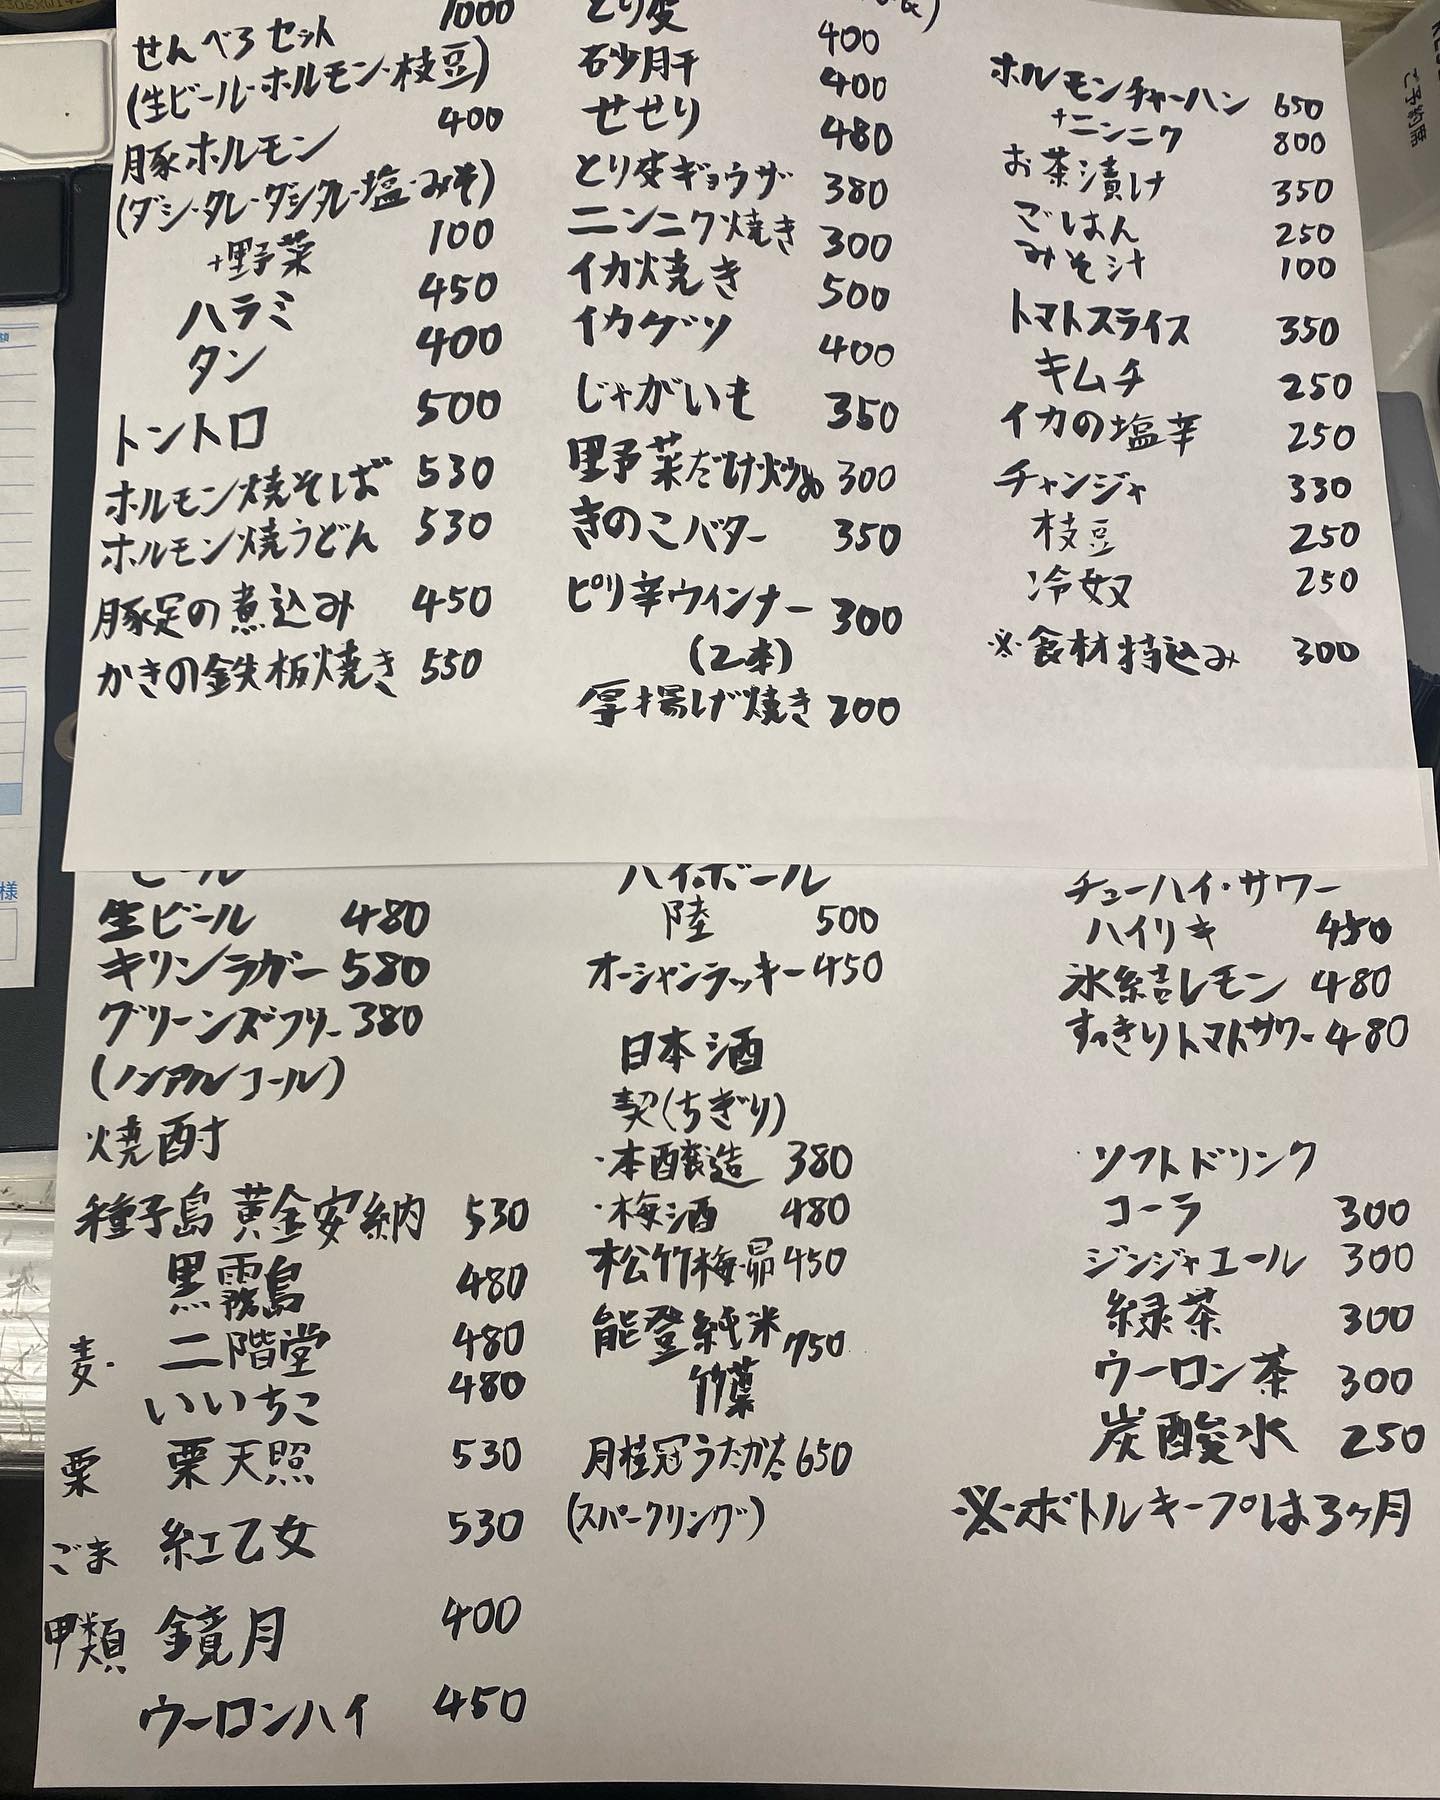 せんべろセット 1000
(生ビール・ホルモン・枝豆)
豚ホルモン 400
(ダシ・タレ・ダシタレ・塩・みそ)
+野菜 100
ハラミ 450
タン 400
トントロ 500
ホルモン焼そば 530
ホルモン焼うどん 530
豚足の煮込み 450
かきの鉄板焼き 550
とり皮
砂肝 400
せせり 400
とり皮ギョウザ 480
ニンニク焼き 380
イカ焼き 300
イカゲソ 500
じゃがいも 400
野菜だけ炒め 350
きのこバター 300
ピリ辛ウインナー 350
(2本) 300
厚揚げ焼き 200
ホルモンチャーハン 650
+ニンニク 800
お茶漬け 350
ごはん 250
みそ汁 100
トマトスライス 350
キムチ 250
イカの塩辛 250
チャンジャ 330
枝豆 250
冷奴 250
※食材持込み 300
ご予約席
様
ビール
生ビール 480
キリンラガー 580
グリーンズフリー 380
(ノンアルコール)
焼酎
種子島 黄金安納 530
黒霧島 480
麦・ 二階堂 480
いいちこ 480
栗 栗天照 530
ごま 紅乙女 530
甲類 鏡月 400
ウーロンハイ 450
ハイボール
陸 500
オーシャンラッキー 450
日本酒
契(ちぎり)
・本醸造 380
・梅酒 480
松竹梅・昴 450
能登純米 750
竹葉
月桂冠うたかた 650
(スパークリング)
チューハイ・サワー
ハイリキ 450
氷結レモン 480
すっきりトマトサワー 480
ソフトドリンク
コーラ 300
ジンジャエール 300
緑茶 300
ウーロン茶 300
炭酸水 250
※ボトルキープは3ヶ月